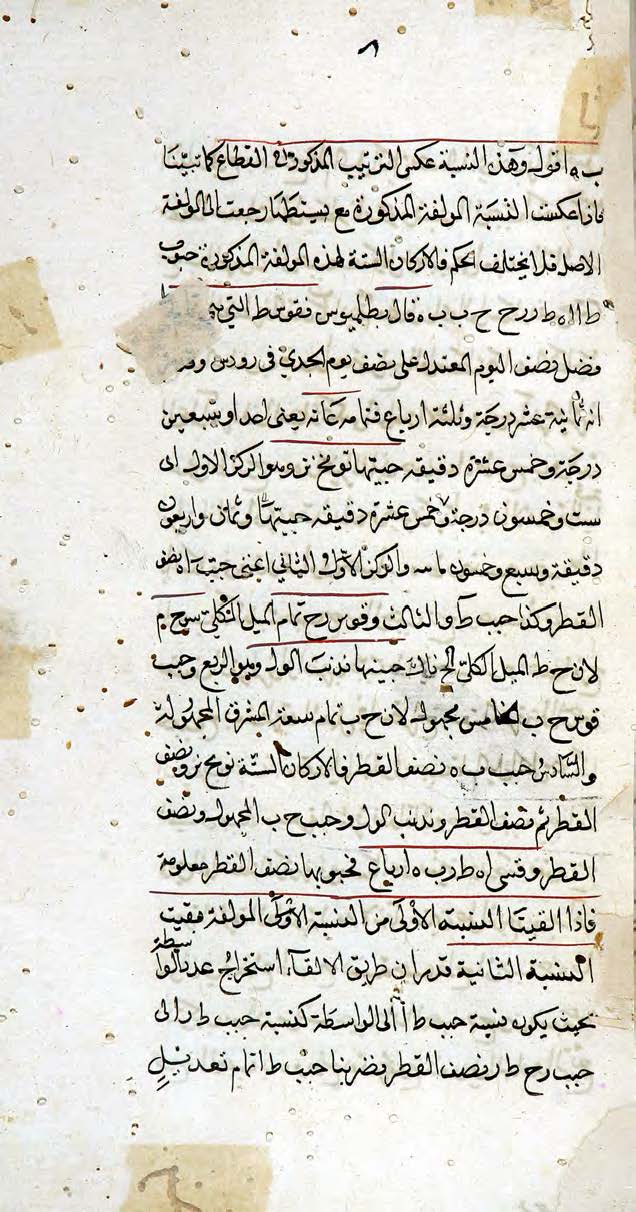 ب ه اقول وهذه النسبة عكس الترتيب المذكور في القطاع كما تبينا
فاذا عكست النسبة المولفة المذكورة مع بسيطتها رجعت الى المولفة
الاصل فلا يختلف الحكم فالاركان الستة لهذه المولفة المذكورة جيوب
ط ا ا ه ط ر رح ح ب ب ه قال بطلميوس فقوس ط التي هي
فضل نصف اليوم المعتدل على نصف يوم الجدي في رودس
انه ثمانية عشر درجة وثلثة ارباع فتمامه يعنى احدا وسبعين
درجة وخمس عشرة دقيقة جيبها نو مح نر وهو الركز الاول
ست وخمسون درجة وخمس عشرة دقيقة جيبها وثمان واربعون
دقيقة وسبع وخمسون والركز الاول الثاني اعنى جيب اه نصف
القطر وكذا جيب ط والثالث وقوس رح تمام الميل الكلي
لان ح ط الميل الكلي جيبها الول وهو الربع وجيب
قوس ح ب الخامس مجهول لان ح ب تمام سعة المشرق المجهولة
والسادس جيب ب ه نصف القطر فالاركان الستة نو مح نر ونصف
القطر ثم نصف القطر الول وجيب ح ب المجهول ونصف
القطر وقسى اه ط ر ب ه ارباع فجيوبها نصف القطر معلومة
فاذا القينا النسبة الاولى من النسبة الاولى المولفة بقيت
النسبة الثانية طريق الالقاء استخراج عدد الواسطة
بحيث يكون نسبة جيب ط ا الى الواسطة كنسبة جيب ط ر الى
جيب رح ط ر نصف القطر فضربنا جيب ط ا تمام تعديل